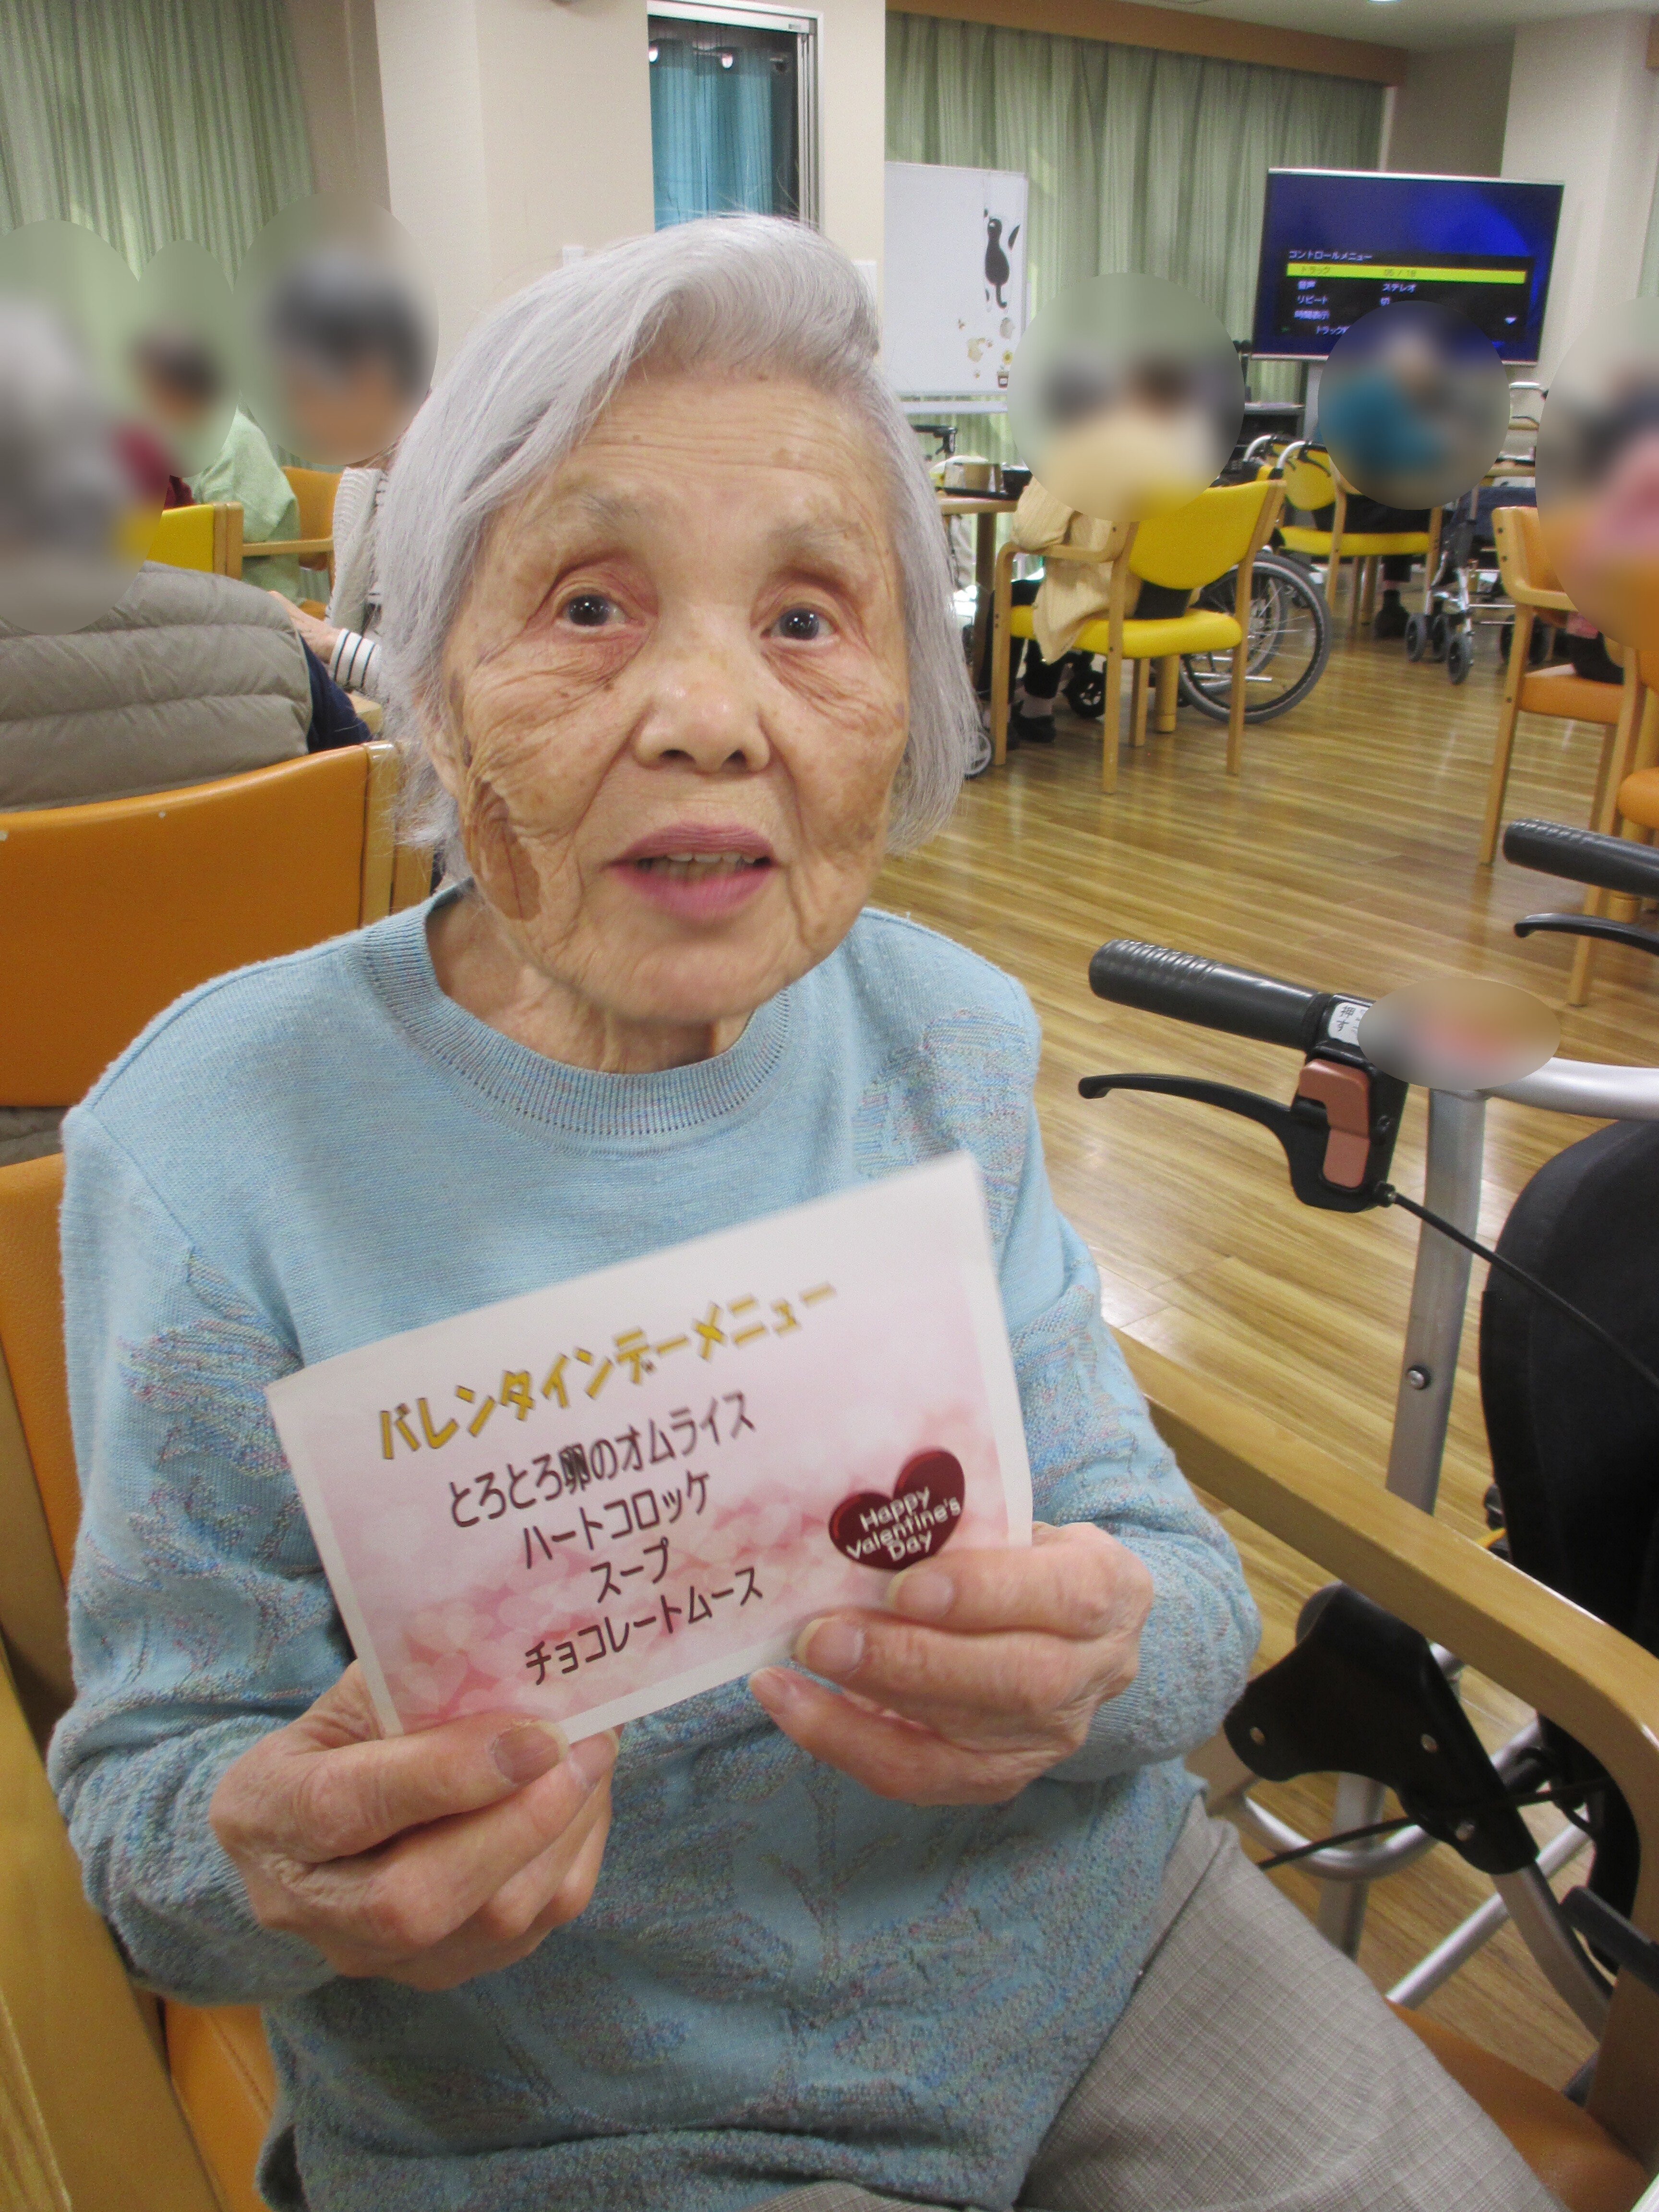 コントロールメニュー
トラック
音声 ステレオ
リピート 切
時間表示
押す
バレンタインデーメニュー
とろとろ卵のオムライス
ハートコロッケ
スープ
チョコレートムース
Happy
Valentine's
Day